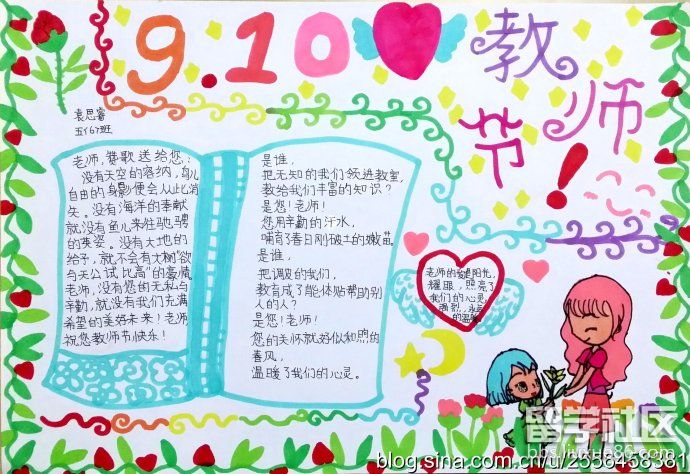 9.10
教师
节!
袁思睿
五(6)班
老师,赞歌送给您:
没有天空的容纳,鸟儿
自由的身影便会从此消
失。没有海洋的奉献
就没有鱼儿来往驰骋
的英姿。没有大地的
给予,就不会有大树“欲
与天公试比高”的豪情。
老师,没有您的无私与
辛勤,就没有我们充满
希望的美好未来!老师
祝您教师节快乐!
是谁,
把无知的我们领进教室,
教给我们丰富的知识?
是您!老师!
您用辛勤的汗水,
哺育了春日刚破土的嫩苗。
是谁,
把调皮的我们,
教育成了能体贴帮助别
人的人?
是您!老师!
您的关师就好似和煦的
春风,
温暖了我们的心灵。
老师的爱是阳光,
耀眼,照亮了
我们的心灵。
的温暖
留学社区
bbs.liuxue86.com
blog.sina.com.cn/u/2556458381